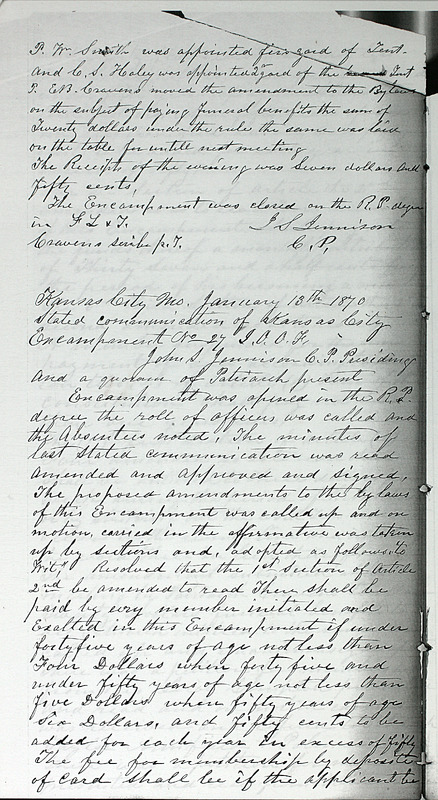 P. Wm Smith was appointed first gaid of Tent
and C. S. Haley was appointed 2d gaid of the Tent
P. E.B. Cravens moved the amendment to the By laws
on the subject of paying funeral benefits the sum of
Twenty dollars under the rule the same was laid
on the table for untill next meeting
The Receipts of the evening was Seven dollars and
fifty cents,
The Encampment was closed on the R. P. degree
in F L & T. J S Jennison
Cravens scribe p.t. C. P.
Kansas City Mo. January 13th 1870
Stated communication of Kansas City
Encampment No 27 I. O. O. F.
John S. Jennison C. P. Presiding
and a quorum of Patriarch present
Encampment was opened in the R. P.
degree the roll of officers was called and
the Absentees noted, The minutes of
last stated communication was read
amended and approved and signed,
The proposed amendments to the by laws
of this Encampment was called up and on
motion, carried in the affermative was taken
up by sections and, adopted as follows to
Wit" Resolved that the 1st Section of Article
2nd be amended to read There shall be
paid by evry member initiated and
Exalted in this Encampment if under
forty five years of age not less than
Four Dollars when forty five and
under fifty years of age not less than
five Dollars, when fifty years of age
Six Dollars, and fifty cents to be
added for each year in excess of fifty
The fee for membership by deposite
of card shall be if the applicant be